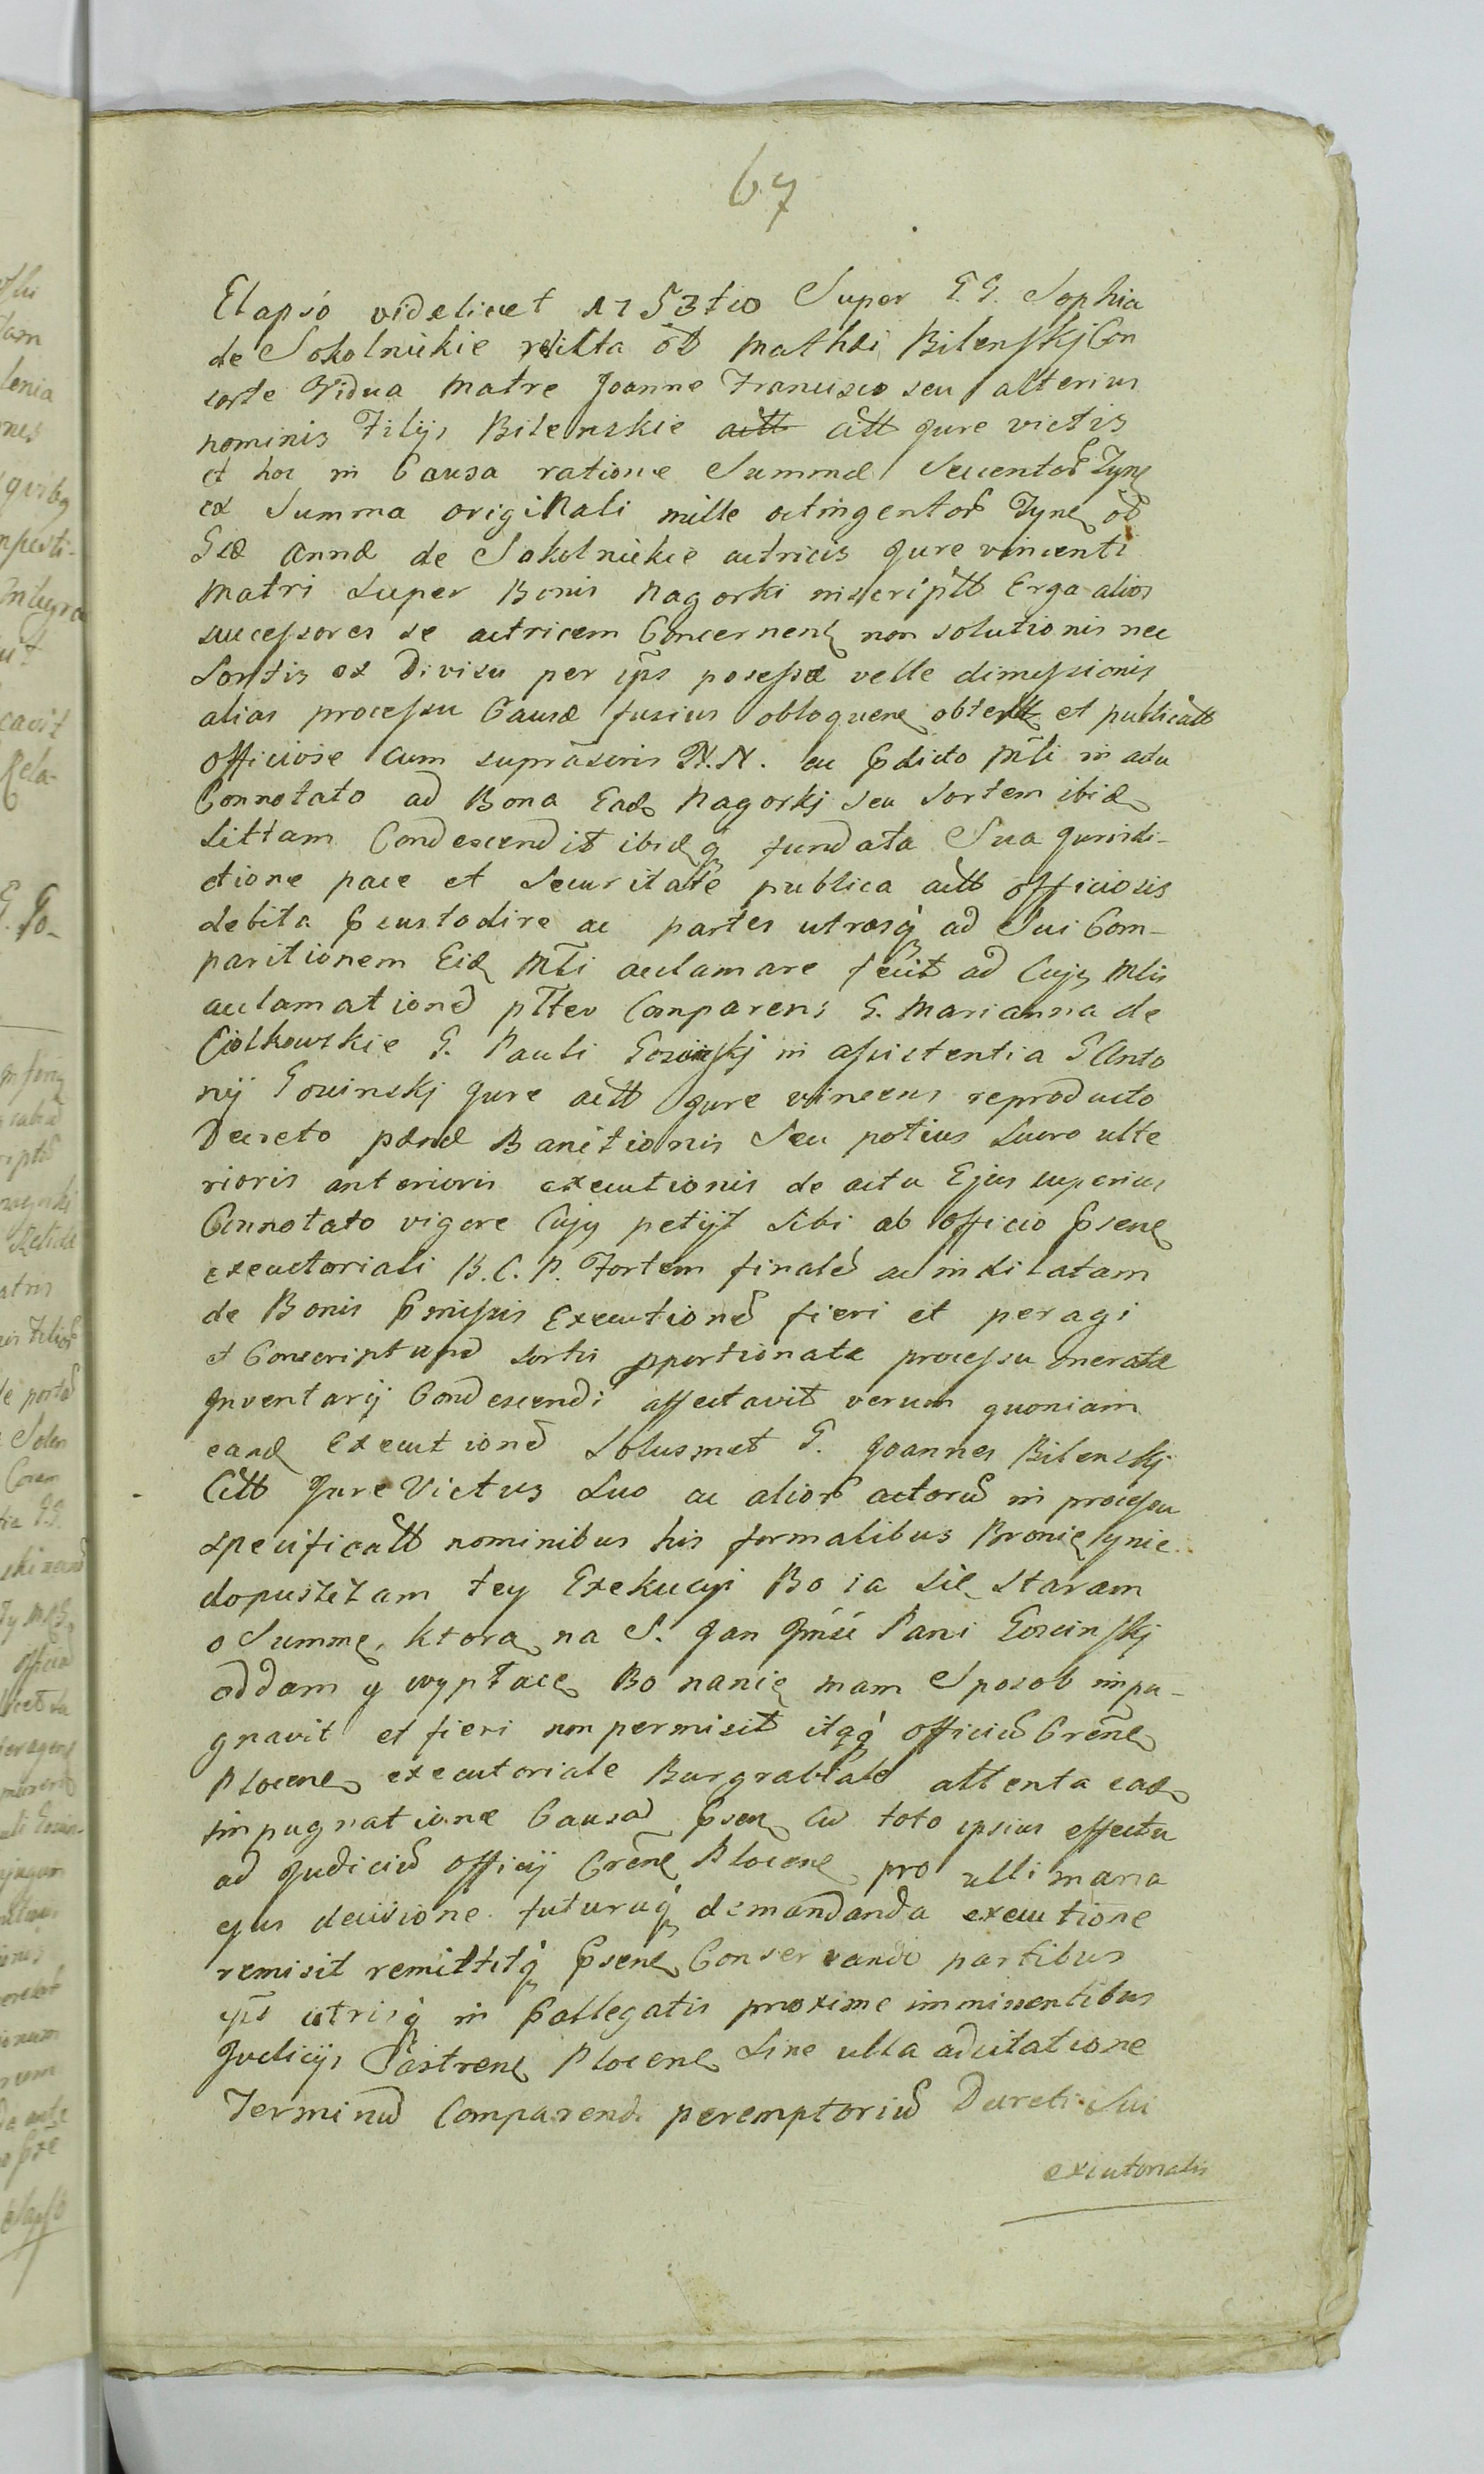 67
Elapso videlicet 1753tio Super G.G. Sophia
de Sokolnickie relicta ōb Mathæi Bilenskj Con
sorte Vidua Matre Joanne Francisco seu alterius
nominis Filijs Bilenskie citt Jure victis
et hoc in Causa ratione Summæ Ducentor̄ Tyn̄
ex Summa originali mille octingentor̄ Tyn̄ ōb
Gæ Annæ de Sokolnickie actricis Jure vincenti
Matri super Bonis Nagorki inscriptt Erga alios
successores se actricem Concernen̄ non solutionis nec
Sortis ex Divisu per ip̄s possessæ velle dimissionis
alias processu Causæ fusius obloquen̄ obtentt et publicatt
officiose cum suprascris N.N. ac p̄dicto Mli in actu
Connotato ad Bona Ead̄ Nagorkj seu Sortem ibid̄
sittam Condescendit ibid̄q̨ fundata Sua Jurisdi-
ctione pace et securitate publica actt officiosis
debita p̄custodire ac partes utrasq̨ ad Sui Com-
paritionem Eid̄ Mli acclamare fecit ad Cujs Mlis
acclamationē ptter Comparens G. Marianna de
Ciolkowskie G. Pauli Goscinskj in assistentia G Anto
nij Goscinskj Jure actt Jure vincens reproducto
Decreto pænæ Banitionis seu potius Lucro ulte
rioris anterioris executionis de actu Ejus superius
Connotato vigore Cujs petijt Sibi ab Officio p̄sen̄
executoriali B.C.P. Fortem finalē ac indilatam
de Bonis p̄missis Executionē fieri et peragi
et Conscriptund sortis pportionatæ processu oneratæ
Inventarij Condescendi affectavit verum quoniam
eand̄ Executionē Solusmet G. Joannes Bilenskj
Citt Jure Victus Suo ac alior̄ actorū in processu
specificatt nominibus his formalibus Bronię y nie
dopuszczam tey Exekucyi Bo ia się staram
o Summę, ktorą na S. Jan Jmści Pani Goscinskj
oddam y wypłacę Bo nanię mam Sposob impu-
gnavit et fieri non permisit itaq̨ officiū Cr̄en̄
Plocen̄ executoriale Burgrabiale attenta ead̄
impugnatione Causā p̄sen̄ Cū toto ipsius effectu
ad Judiciū officij Cr̄en̄ Plocen̄ pro ultimaria
ejus decisione futuraq̨ demandanda executione
remisit remittitq̨ p̄sen̄ Conservando partibus
ip̄s utrisq̨ in p̄allegatis proxime imminentibus
Judicijs Castren̄ Plocen̄ Sine ulla adcitatione
Terminū Comparendi peremptoriū Decreti Sui
executorialis